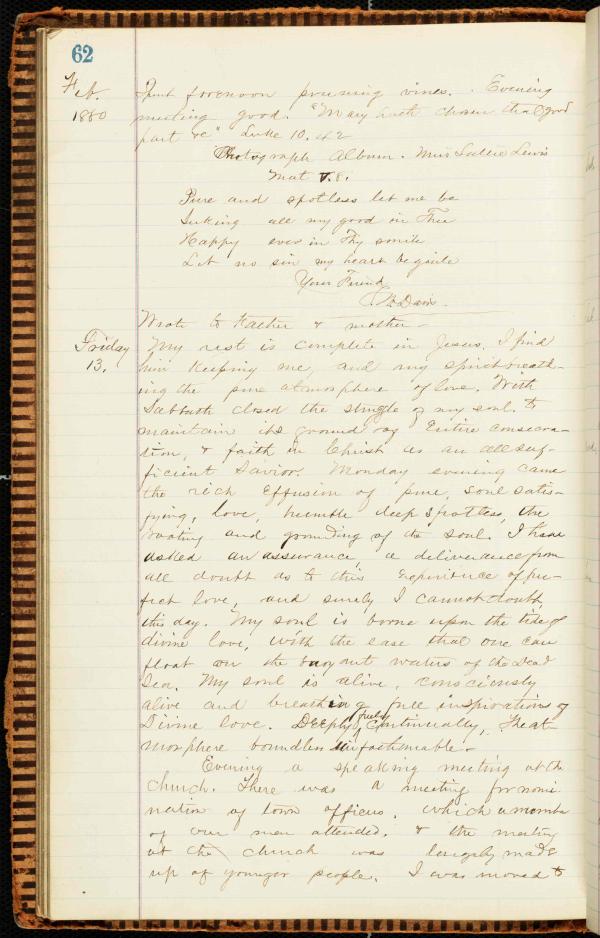 62
Feb. Spent forenoon pruning vines. Evening
1880 meeting good. "Mary hath chosen that good
part &c" Luke 10.42
Photograph Album. Miss Sallie Lewis
Mat V.8.
Pure and spotless let me be
Seeking all my good in Thee
Happy ever in Thy smile
Let no sin my heart beguile
Your Friend

Wrote to Father & mother —
Friday My rest is complete in Jesus. I find
13. him keeping me, and my spirit breath-
ing the pure atmosphere of love. With
Sabbath closed the struggle of my soul to
maintain its ground of Entire consecra-
tion, & faith in Christ as an allsuf-
ficient Savior. Monday evening came
the rich Effusion of pure, soul satis-
fying, love, humble deep spotless, the
rooting and grounding of the soul. I have
asked an assurance, a deliverance from
all doubt as to this experience of per-
fect love, and surely I cannot doubt
this day. My soul is borne upon the tide of
divine love, with the ease that one can
float on the buoyant waters of the Dead
Sea. My soul is alive, consciously
alive and breathing free inspirations of
Divine love. Deeply, freely continually, The at-
mosphere boundless unfathomable.
Evening a speaking meeting at the
Church. There was a meeting for nomi
nation of town officers, which a
of our men attended. & the meeting
at the church was largely made
up of younger people. I was moved to